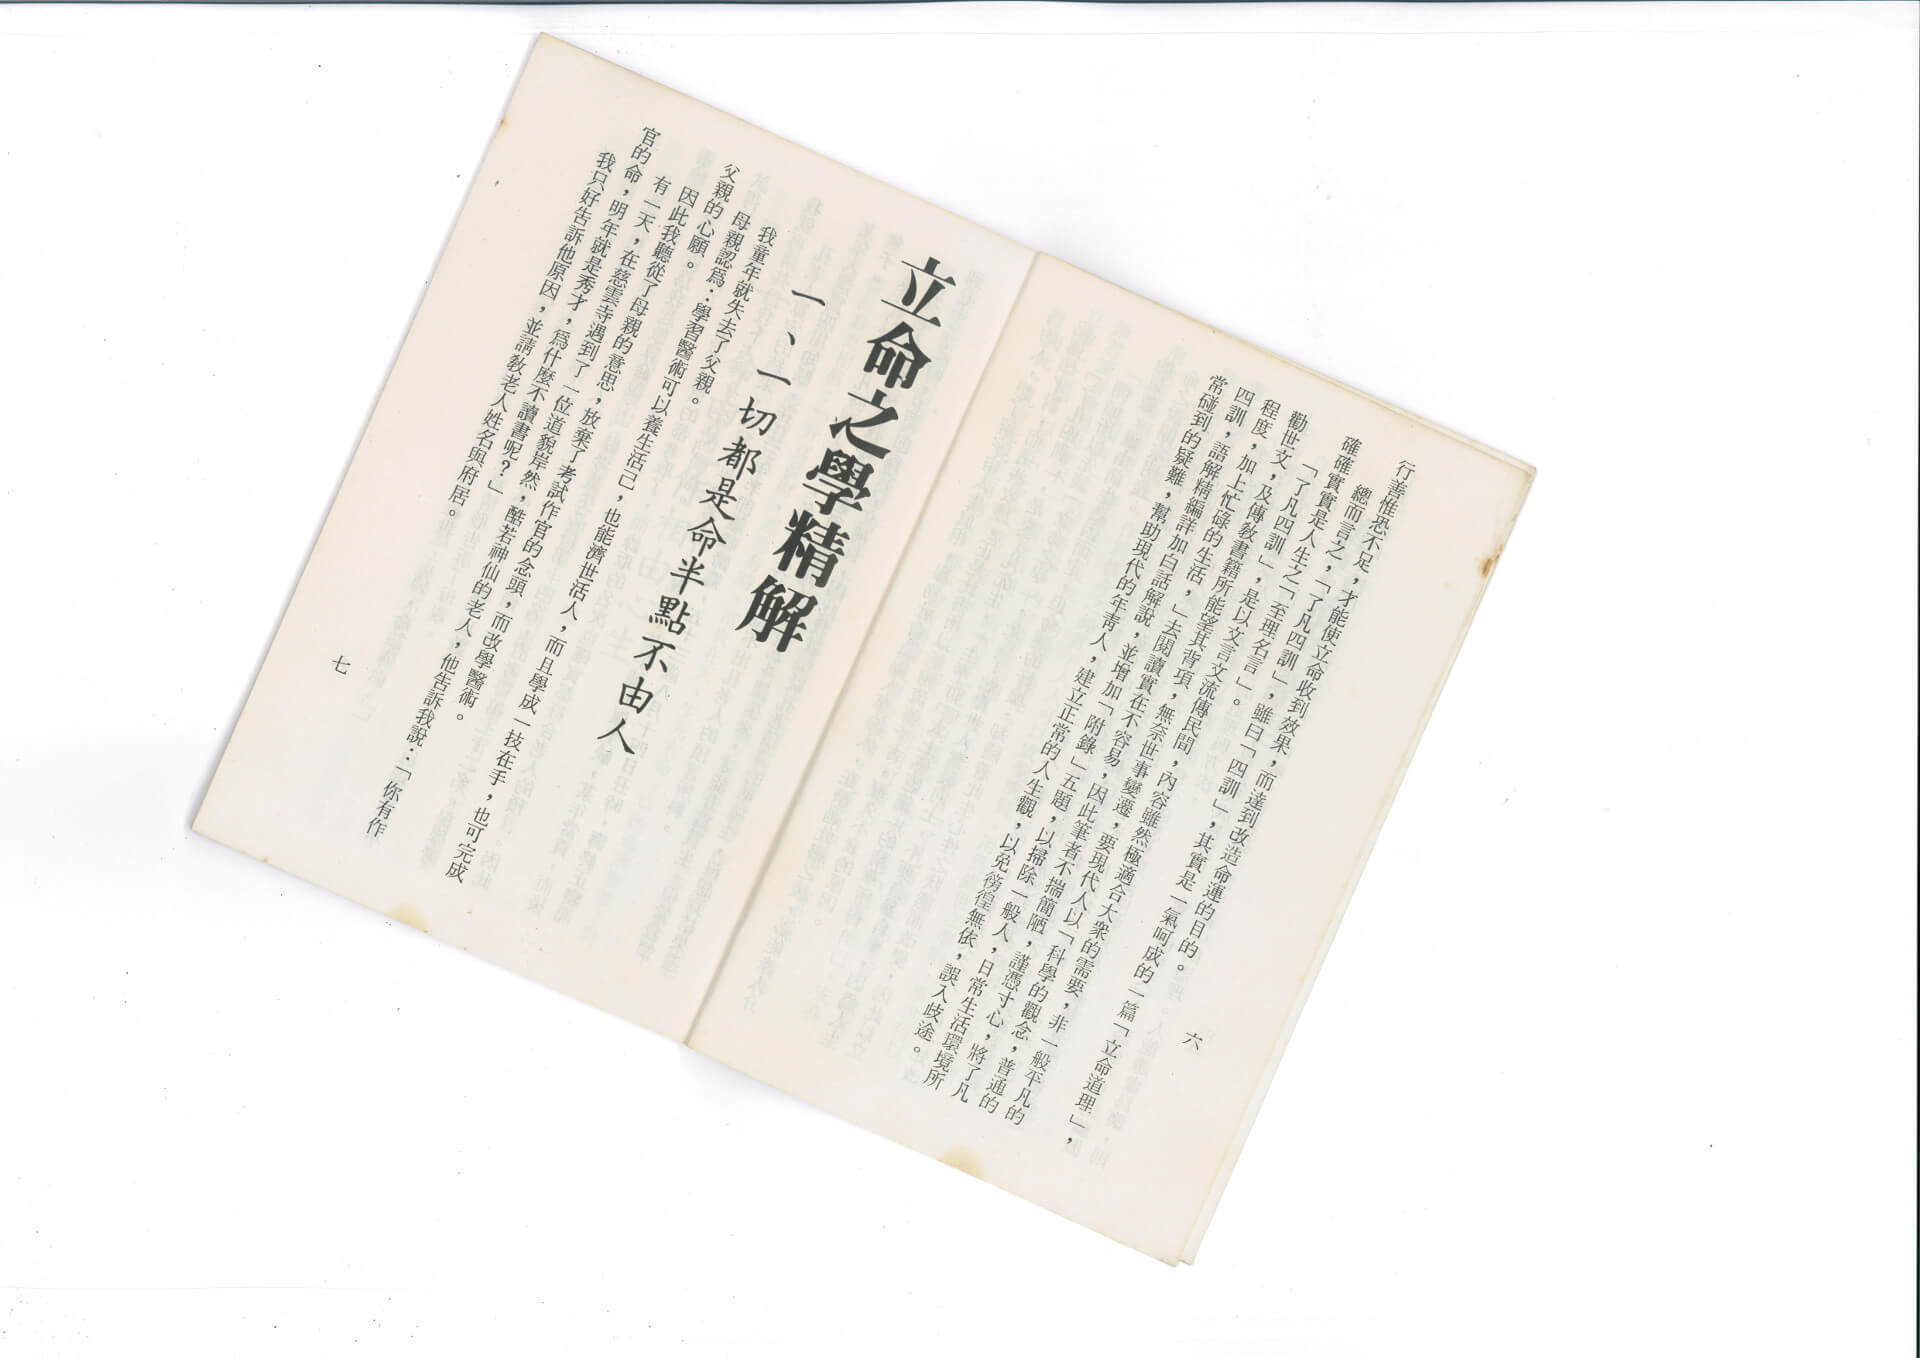 行善惟恐不足，才能使立命收到效果，而達到改造命運的目的。
總而言之，「了凡四訓」，雖曰「四訓」，其實是一氣呵成的一篇「立命道理」，
確確實實是人生之「至理名言」。
「了凡四訓」，是以文言文流傳民間，內容雖然極適合大衆的需要，非一般平凡的
勸世文，及傳教書籍所能望其背項，無奈世事變遷，要現代人以「科學的觀念，普通的
程度，加上忙碌的生活，」去閱讀實在不容易，因此筆者不揣簡陋，謹憑寸心，將了凡
四訓，語解精編詳加白話解說，並增加「附錄」五題，以掃除一般人，日常生活環境所
常碰到的疑難，幫助現代的年靑人，建立正常的人生觀，以免徬徨無依，誤入歧途。
六
立命之學精解
一、一切都是命半點不由人
我童年就失去了父親。
母親認爲：學習醫術可以養生活己，也能濟世活人，而且學成一技在手，也可完成
父親的心願。
因此我聽從了母親的意思，放棄了考試作官的念頭，而改學醫術。
有一天，在慈雲寺遇到了一位道貌岸然，酷若神仙的老人，他告訴我說：「你有作
官的命，明年就是秀才，爲什麼不讀書呢？」
我只好告訴他原因，並請敎老人姓名與府居。
七